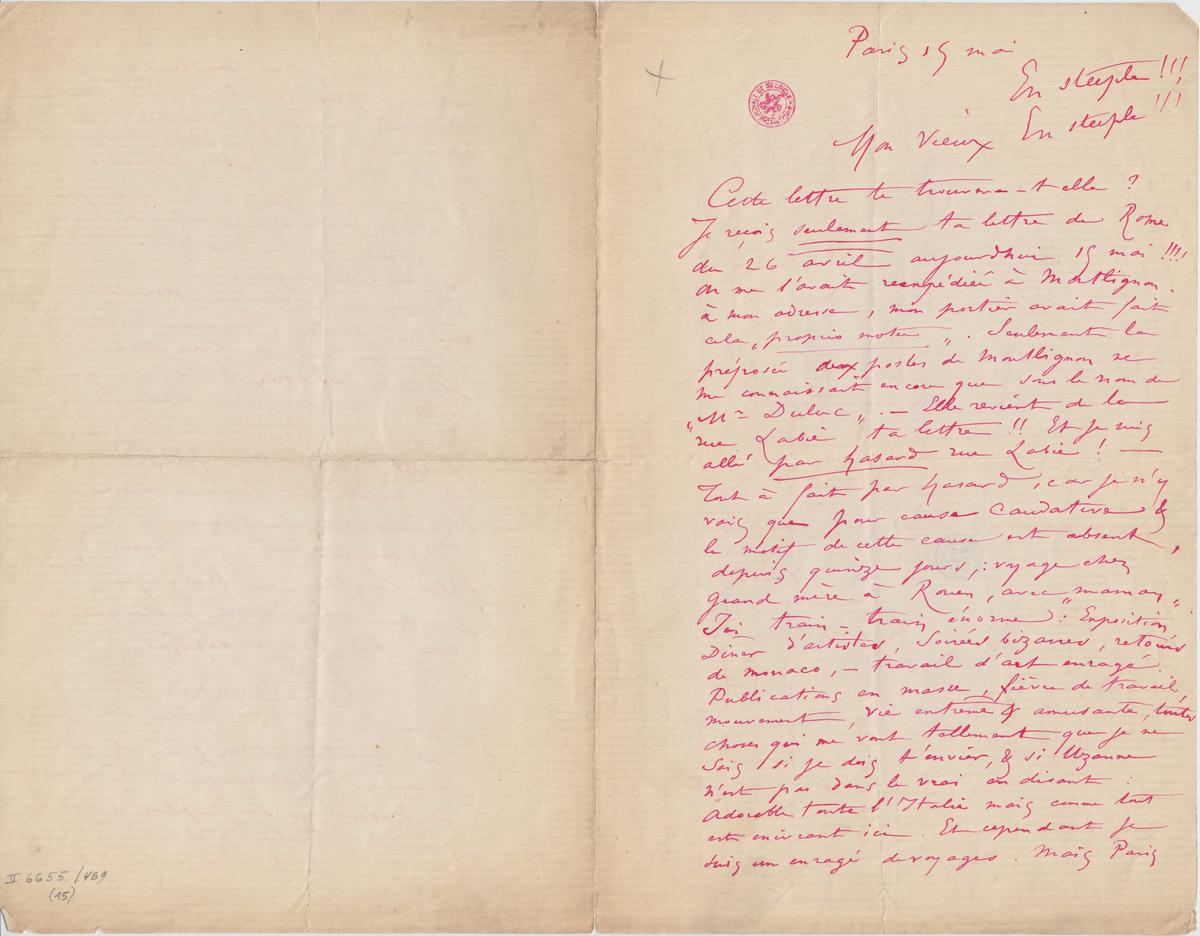 Paris 15 mai
En steeple !!!
En steeple !!!
Mon Vieux
Cette lettre te trouvera-t-elle ?
Je reçois seulement ta lettre de Rome
du 26 avril aujourdhui 15 mai !!!!
On me l'avait reexpédiée à Montlignon.
à mon adresse, mon portier avait fait
cela „proprio motu„. Seulement la
préposée aux postes de Montlignon ne
me connaissait encore que sous le nom de
„Mr Duluc„. — Elle revient de la
rue Labie ta lettre !! Et je suis
allé par hasard rue Labie ! —
Tout à fait par hasard, car je n'y
vais que pour cause caudative &
le motif de cette cause est absent,
depuis quinze jours, : voyage chez
grand mère à Rouen, avec maman„.
Ici train-train énorme : Exposition
Diner d'artistes, Soirées bizarres, retours
de monaco, — travail d'art enragé.
Publications en masse, fièvre de travail,
mouvement, vie extrême & amusante, toutes
choses qui me vont tellement que je ne
sais si je dois t'envier, & si Uzanne
n'est pas dans le vrai en disant :
Adorable toute l'Italie mais comme tout
est enivrant ici. Et cependant je
suis un enragé de voyages. Mais Paris
II 6655 /469
(15)